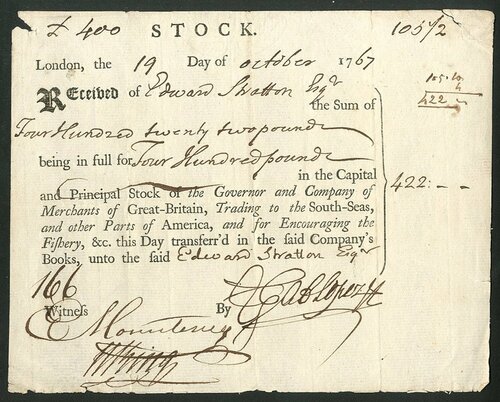 £ 400 STOCK. 105 1/2
London, the 19 Day of october 1767
REceived of Edward Stratton Esqr
the Sum of
105.10
4
422
Four Hundred twenty two pounds
being in full for Four Hundred pounds
in the Capital
422:--
and Principal Stock of the Governor and Company of
Merchants of Great-Britain, Trading to the South-Seas,
and other Parts of America, and for Encouraging the
Fishery, &c. this Day transferr'd in the said Company's
Books, unto the said Edward Stratton Esqr
166
Witness By